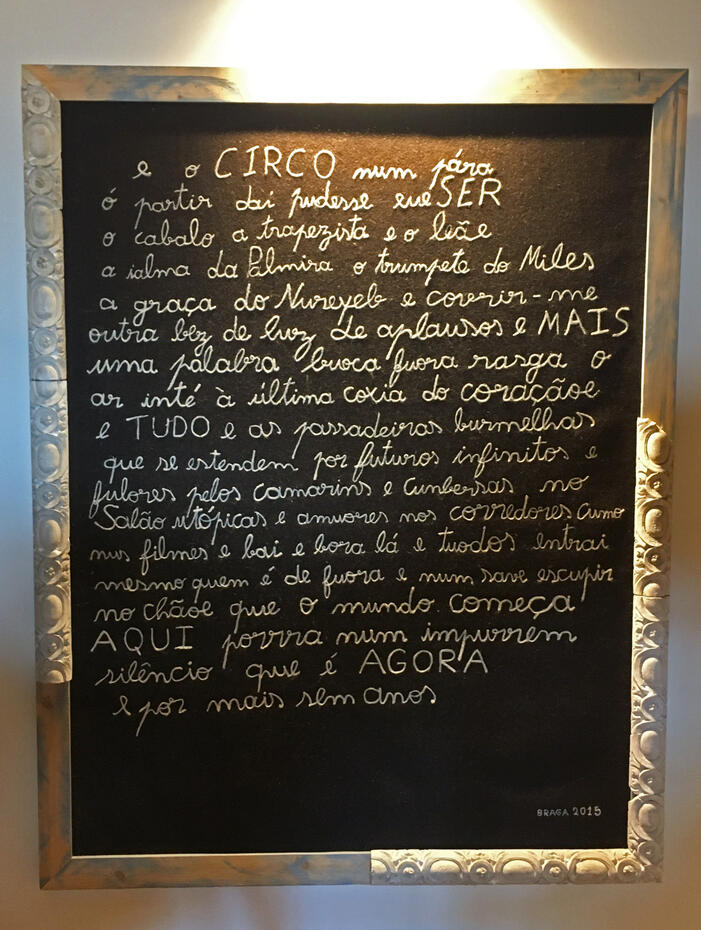 e o CIRCO num pára
ó partir daí pudesse eue SER
o cabalo a trapezista e o leãe
a ialma da Palmira o trumpete do Miles
a graça do Nureyeb e couvrir-me
outra bez de luoz de aplausos e MAIS
uma palabra buoca fuora rasga o
ar inté à última coxia do coraçãoe
e TUDO e as passadeiras burmelhas
que se estendem por futuros infinitos e
fulores pelos camarins e cunbersas no
Salão utópicas e amuores nos corredores cumo
nus filmes e bai e bora lá e tuodos entrai
mesmo quem é de fuora e num save escupir
no chãoe que o mundo começa
AQUI porra num impurrem
silêncio que é AGORA
e por mais sem anos
BRAGA 2015